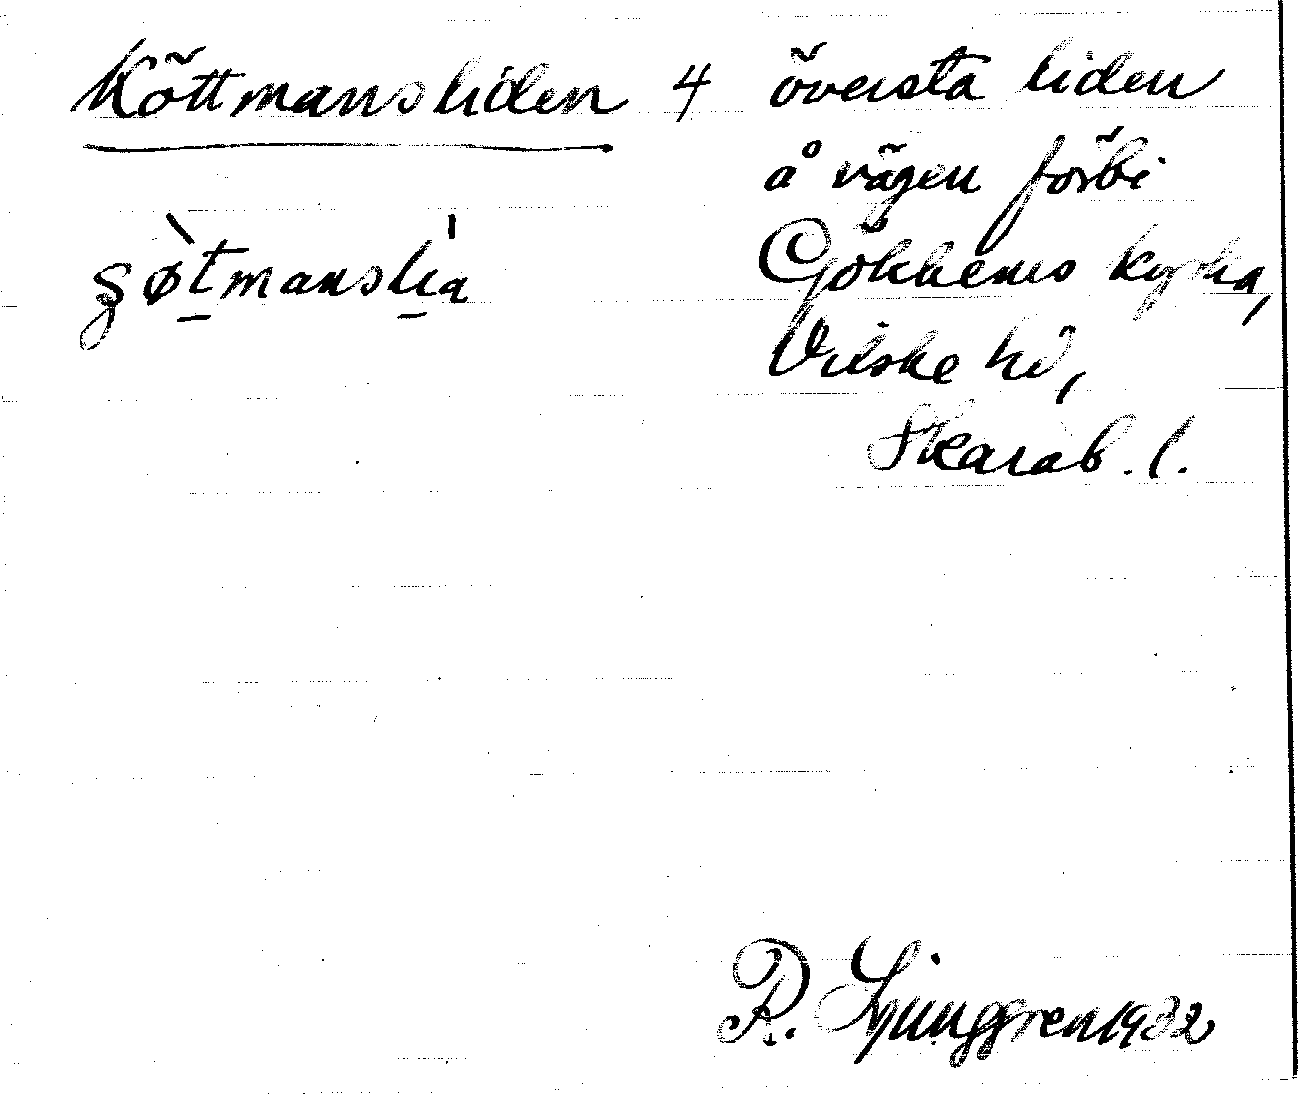 Köttmansliden 4 översta liden
å vägen förbi
şøtmanslia Gökhems kyrka,
Vilske hd,
Skarab. l.
R. Ljunggren 1932